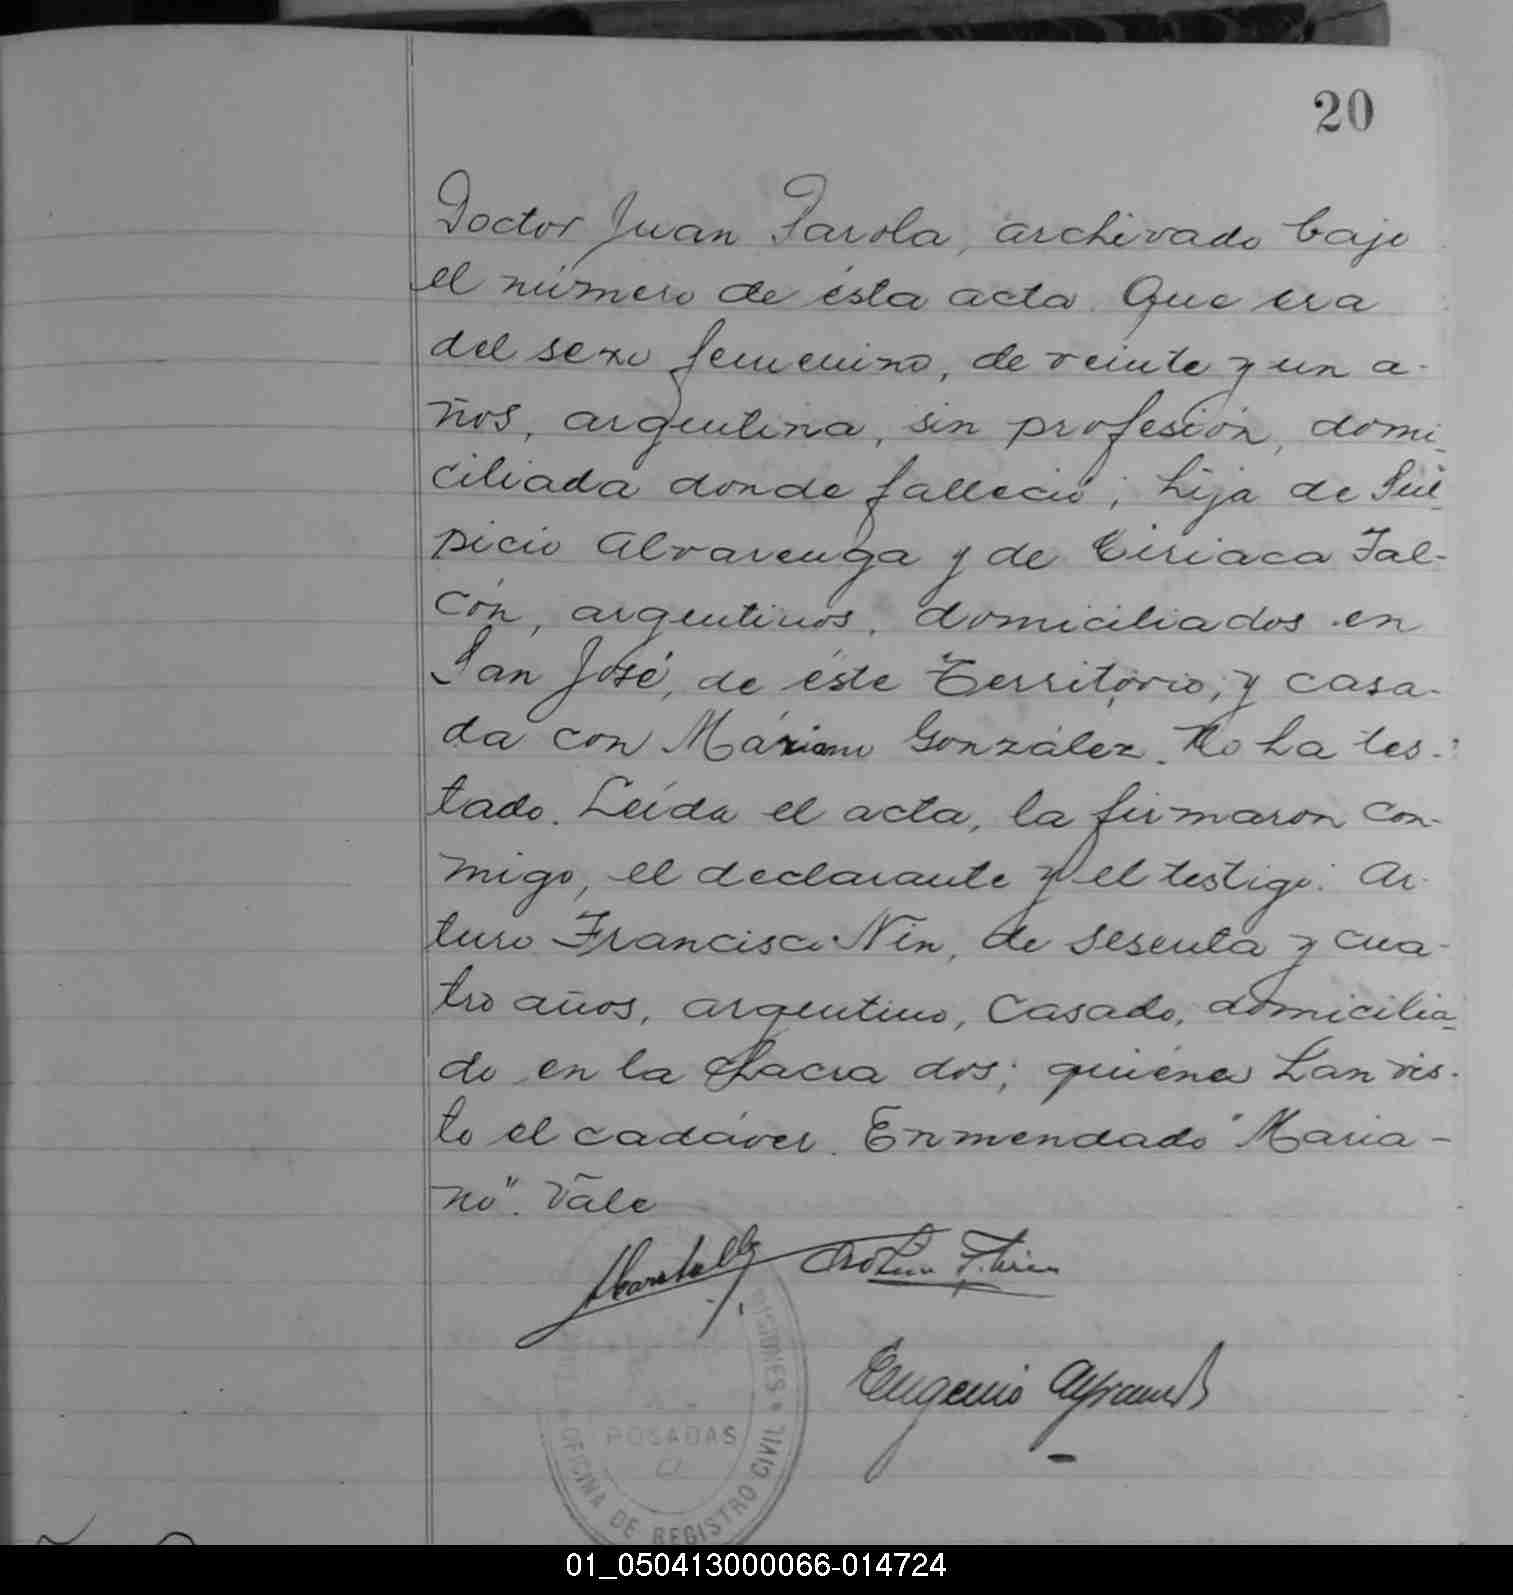 20
Doctor Juan Farola, archivado bajo
el número de ésta acta. Que era
del sexo femenino, de veinte y un a-
ños, argentina, sin profesión, domi-
ciliada donde falleció; hija de Sul-
picio Alvarenga y de Ciriaca Fal-
cón, argentinos, domiciliados en
San José, de éste Territorio; y casa-
da con Mariano González. No ha tes-
tado. Leída el acta, la firmaron con-
migo, el declarante y el testigo: Ar-
turo Francisco Nin, de sesenta y cua-
tro años, argentino, casado, domicilia-
do en la chacra dos; quiénes han vis-
to el cadáver. Enmendado "Maria-
no". Vale
Eugenio
MISIONES
POSADAS
OFICINA DE REGISTRO CIVIL
01_050413000066-014724